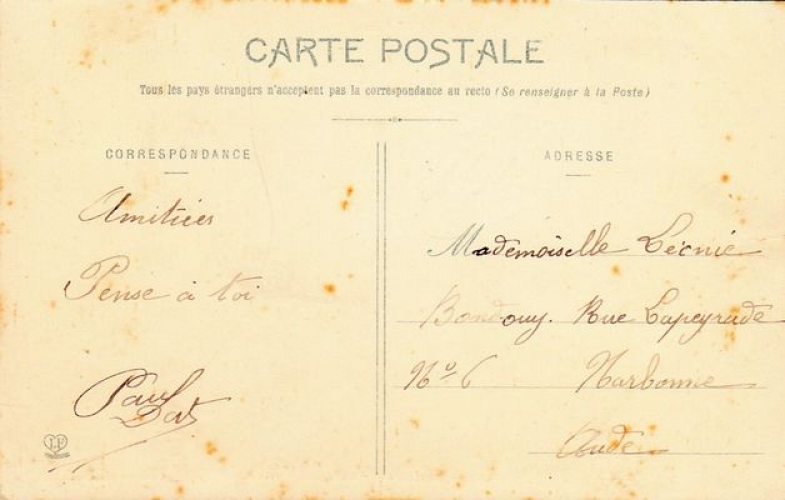 CARTE POSTALE
Tous les pays étrangers n'acceptent pas la correspondance au recto (Se renseigner à la Poste)
CORRESPONDANCE
Amitiées
Pense à toi
Paul
ADRESSE
Mademoiselle Léonie
Bondouy. Rue Lapeyrade
Nº 6 Narbonne
Aude